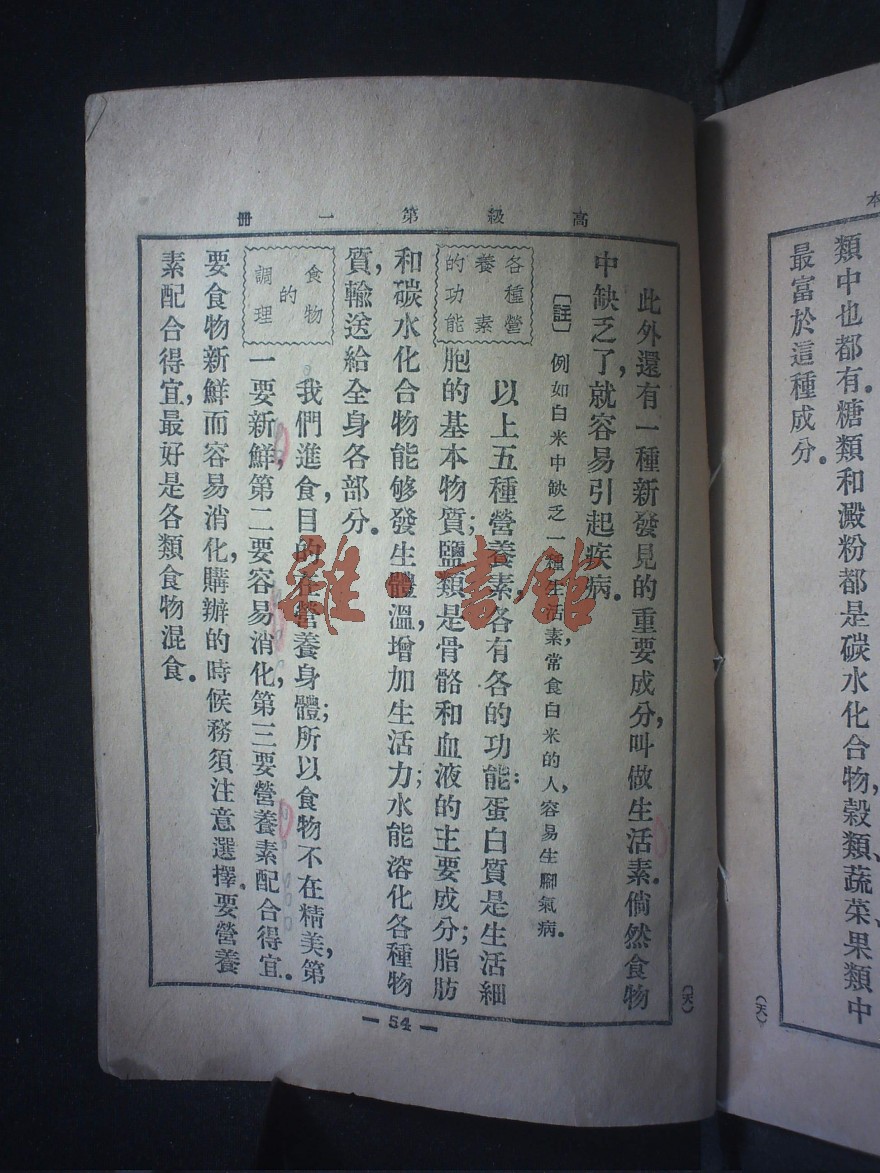 本
類中也都有。糖類和澱粉都是碳水化合物,穀類、蔬菜、果類中
最富於這種成分。
(天)
高級第一冊
此外還有一種新發見的重要成分,叫做生活素。倘然食物
中缺乏了,就容易引起疾病。
〔註〕 例如白米中缺乏一種生活素,常食白米的人,容易生腳氣病。
各種營養素的功能
以上五種營養素,各有各的功能:蛋白質是生活細
胞的基本物質;鹽類是骨骼和血液的主要成分;脂肪
和碳水化合物能够發生體溫,增加生活力;水能溶化各種物
質,輸送給全身各部分。
食物的調理
我們進食,目的在營養身體;所以食物不在精美,第
一要新鮮,第二要容易消化,第三要營養素配合得宜。
要食物新鮮而容易消化,購辦的時候務須注意選擇。要營養
素配合得宜,最好是各類食物混食。
(天)
— 54 —
雜·書館